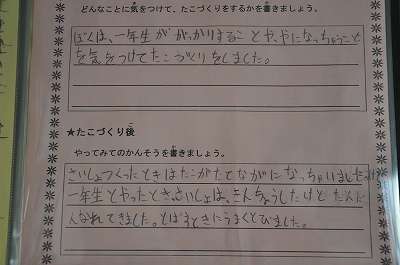 どんなことに気をつけて、たこづくりをするかを書きましょう。
ぼくは、一年生ががっかりすることや、やになっちゃうこと
を気をつけてたこづくりをしました。
★たこづくり後
やってみてのかんそうを書きましょう。
さいしょつくったときはたこがたてながになっちゃいました
一年生とやったときさいしょは、きんちょうしたけどだんだ
んなれてきました。とばすときにうまくとびました。